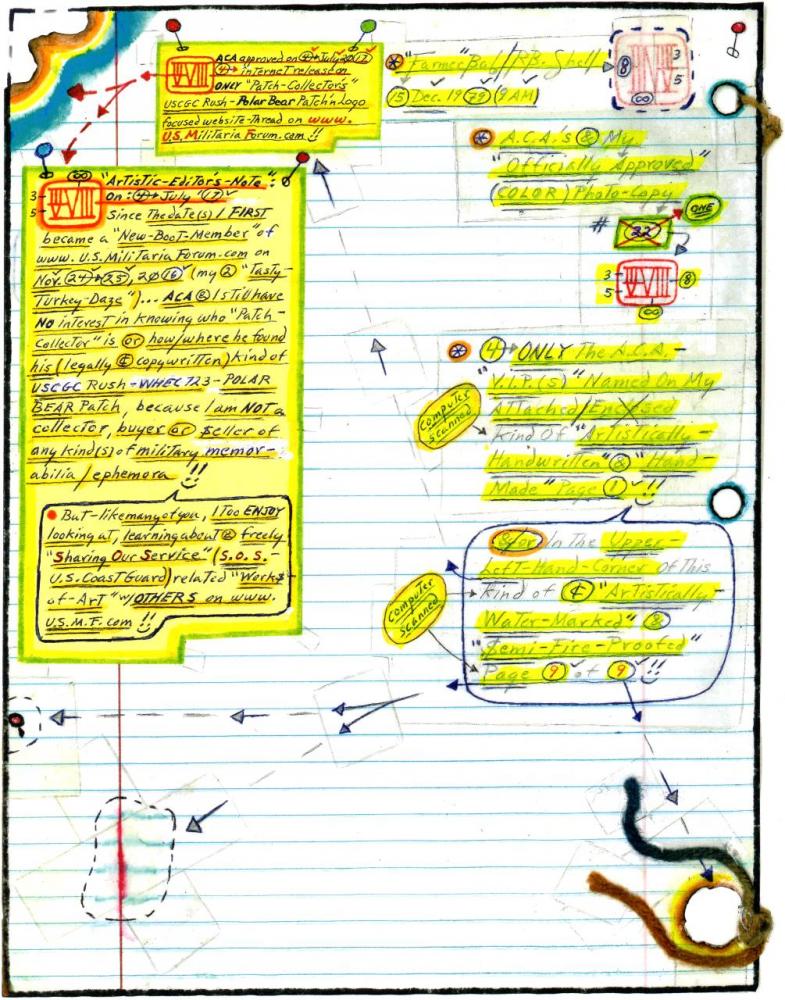 ACA approved on 4 → July 2017
internet release on
ONLY "Patch-Collector's"
USCGC Rush-Polar Bear Patch n Logo
focused website-Thread on www.
U.S.MiliTaria Forum.com !!
VVIII
"Farmer" Bal/RB-Shell
15 Dec. 1979 (9 AM)
8
3
5
∞
A.C.A.'s & My
"Officially Approved"
(COLOR) Photo-Copy
# 22
ONE
3
5
VVIII
8
∞
∞
3
5
VVIII
"Artistic-Editor's-Note"
on: 4 → July "17"
Since The date(s) I FIRST
became a "New-BooT-Member" of
www.U.S.MiliTaria Forum.com on
Nov. 24 → 25, 2016 (my 2 "Tasty-
Turkey-Daze")... ACA & I still have
NO interest in knowing who "Patch-
Collector" is or how/where he found
his (legally ¢ copywritten) kind of
USCGC Rush-WHEC 723-POLAR
BEAR Patch, because I am NOT a
collector, buyer or $eller of
any kind(s) of military memor-
abilia/ephemora !!
But-like many of you, I Too ENJOY
looking at, learning about & freely
"Sharing Our Service" (S.O.S.-
U.S. Coast Guard) related "Works-
of-Art" w/OTHERS on www.
U.S.M.F.com !!
4 → ONLY The A.C.A.-
"V.I.P.(s)" Named On My
ATTached/Enclosed
kind Of "Artistically-
Handwritten" & "Hand-
Made" Page 1 !!
Computer
scanned
&/or In The Upper-
Left-Hand-Corner Of This
kind of ¢ "Artistically-
Water-Marked" &
"Semi-Fire-Proofed"
Page 9 of 9 !!
Computer
scanned